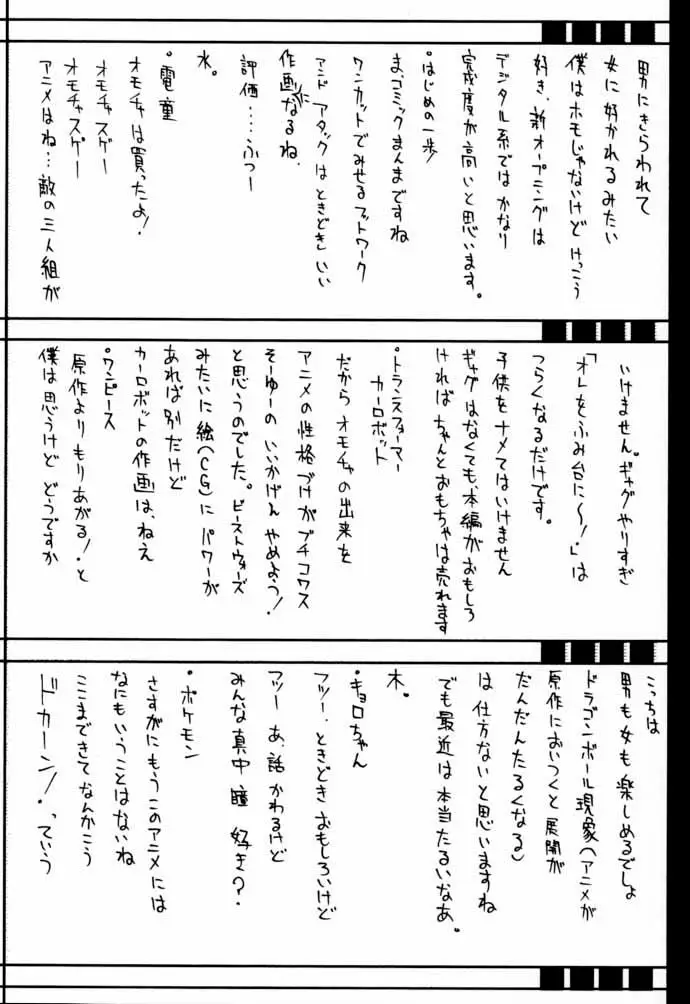 男にきらわれて
女に好かれるみたい
僕はホモじゃないけど けっこう
好き、新オープニングは
デジタル系ではかなり
完成度が高いと思います。
・はじめの一歩
ま、コミックまんまですね
ワンカットでみせるフットワーク
アンド アタックは ときどき いい
作画になるね、
評価……ふつー
水。
・電童
オモチャは買ったよ!
オモチャスゲー
オモチャスゲー
アニメはね…敵の三人組が
いけません。ギャグやりすぎ
「オレをふみ台に〜!」は
つらくなるだけです。
子供をナメてはいけません
ギャグはなくても、本編がおもしろ
ければ ちゃんとおもちゃは売れます
・トランスフォーマー
カーロボット
だから オモチャの出来を
アニメの性格づけがブチコワス
そーゆーの いいかげん やめよう!
と思うのでした。ビーストウォーズ
みたいに絵(CG)に パワーが
あれば別だけど
カーロボットの作画は、ねえ
・ワンピース
原作よりもりあがる!と
僕は思うけど どうですか
こっちは
男も女も楽しめるでしょ
ドラゴンボール現象(アニメが
原作においつくと展開が
だんだんたるくなる)
は 仕方ないと思いますね
でも最近は本当たるいなあ。
木。
・キョロちゃん
フツー、ときどき おもしろいけど
フツー あ、話かわるけど
みんな真中 瞳 好き?
・ポケモン
さすがにもうこのアニメには
なにもいうことはないね
ここまできてなんかこう
ドカーン!っていう